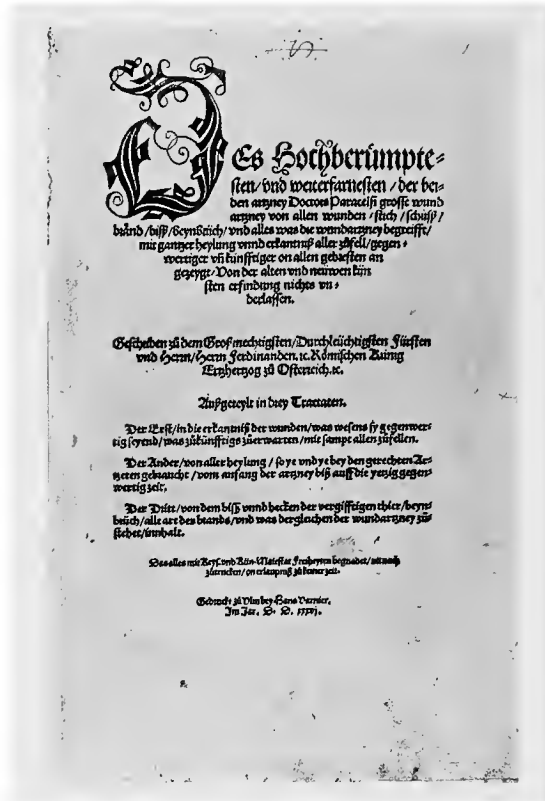 DEs Hochberümpte-
sten/vnd weiterfarnesten/der bei-
den artzney Doctors Paracelsi grosse wund
artzney von allen wunden/stich/schüß/
bränd/biß/beynbrüch/vnd alles was die wundartzney begreifft/
mit gantzer heylung vnnd erkantnuß aller zůfell/gegen-
wertiger vñ künfftiger on allen gebresten an
gezeygt/Von der alten vnd neüwen kün
sten erfindung nichts vn-
derlassen.
Geschriben zů dem Großmechtigsten/Durchleüchtigsten Fürsten
vnd Herrn/Herrn Ferdinanden. ꝛc. Römischen Künig
Ertzhertzog zů Osterreich. ꝛc.
Außgeteylt in drey Tractaten.
Der Erst/in die erkantniß der wunden/was wesens sy gegenwer-
tig seyend/was zůkünfftigs zůerwarten/mit sampt allen zůfellen.
Der Ander/von aller heylung/so ye vnd ye bey den gerechten Ar-
tzeten gebraucht/vom anfang der artzney biß auff die yetzig gegen-
wertig zeit.
Der Dritt/von dem biß vnnd becken der vergifftigen thier/beyn-
brüch/alle art des brands/vnd was dergleichen der wundartzney zů-
stehet/innhalt.
Des alles mit Keys. vnd Kün. Maiestat Freiheyten begnadet/nit nach
zůtrucken/on erlaupnuß zů keiner zeit.
Getruckt zů Vlm bey Hans Varnier.
Im Jar. M. D. xxxvj.